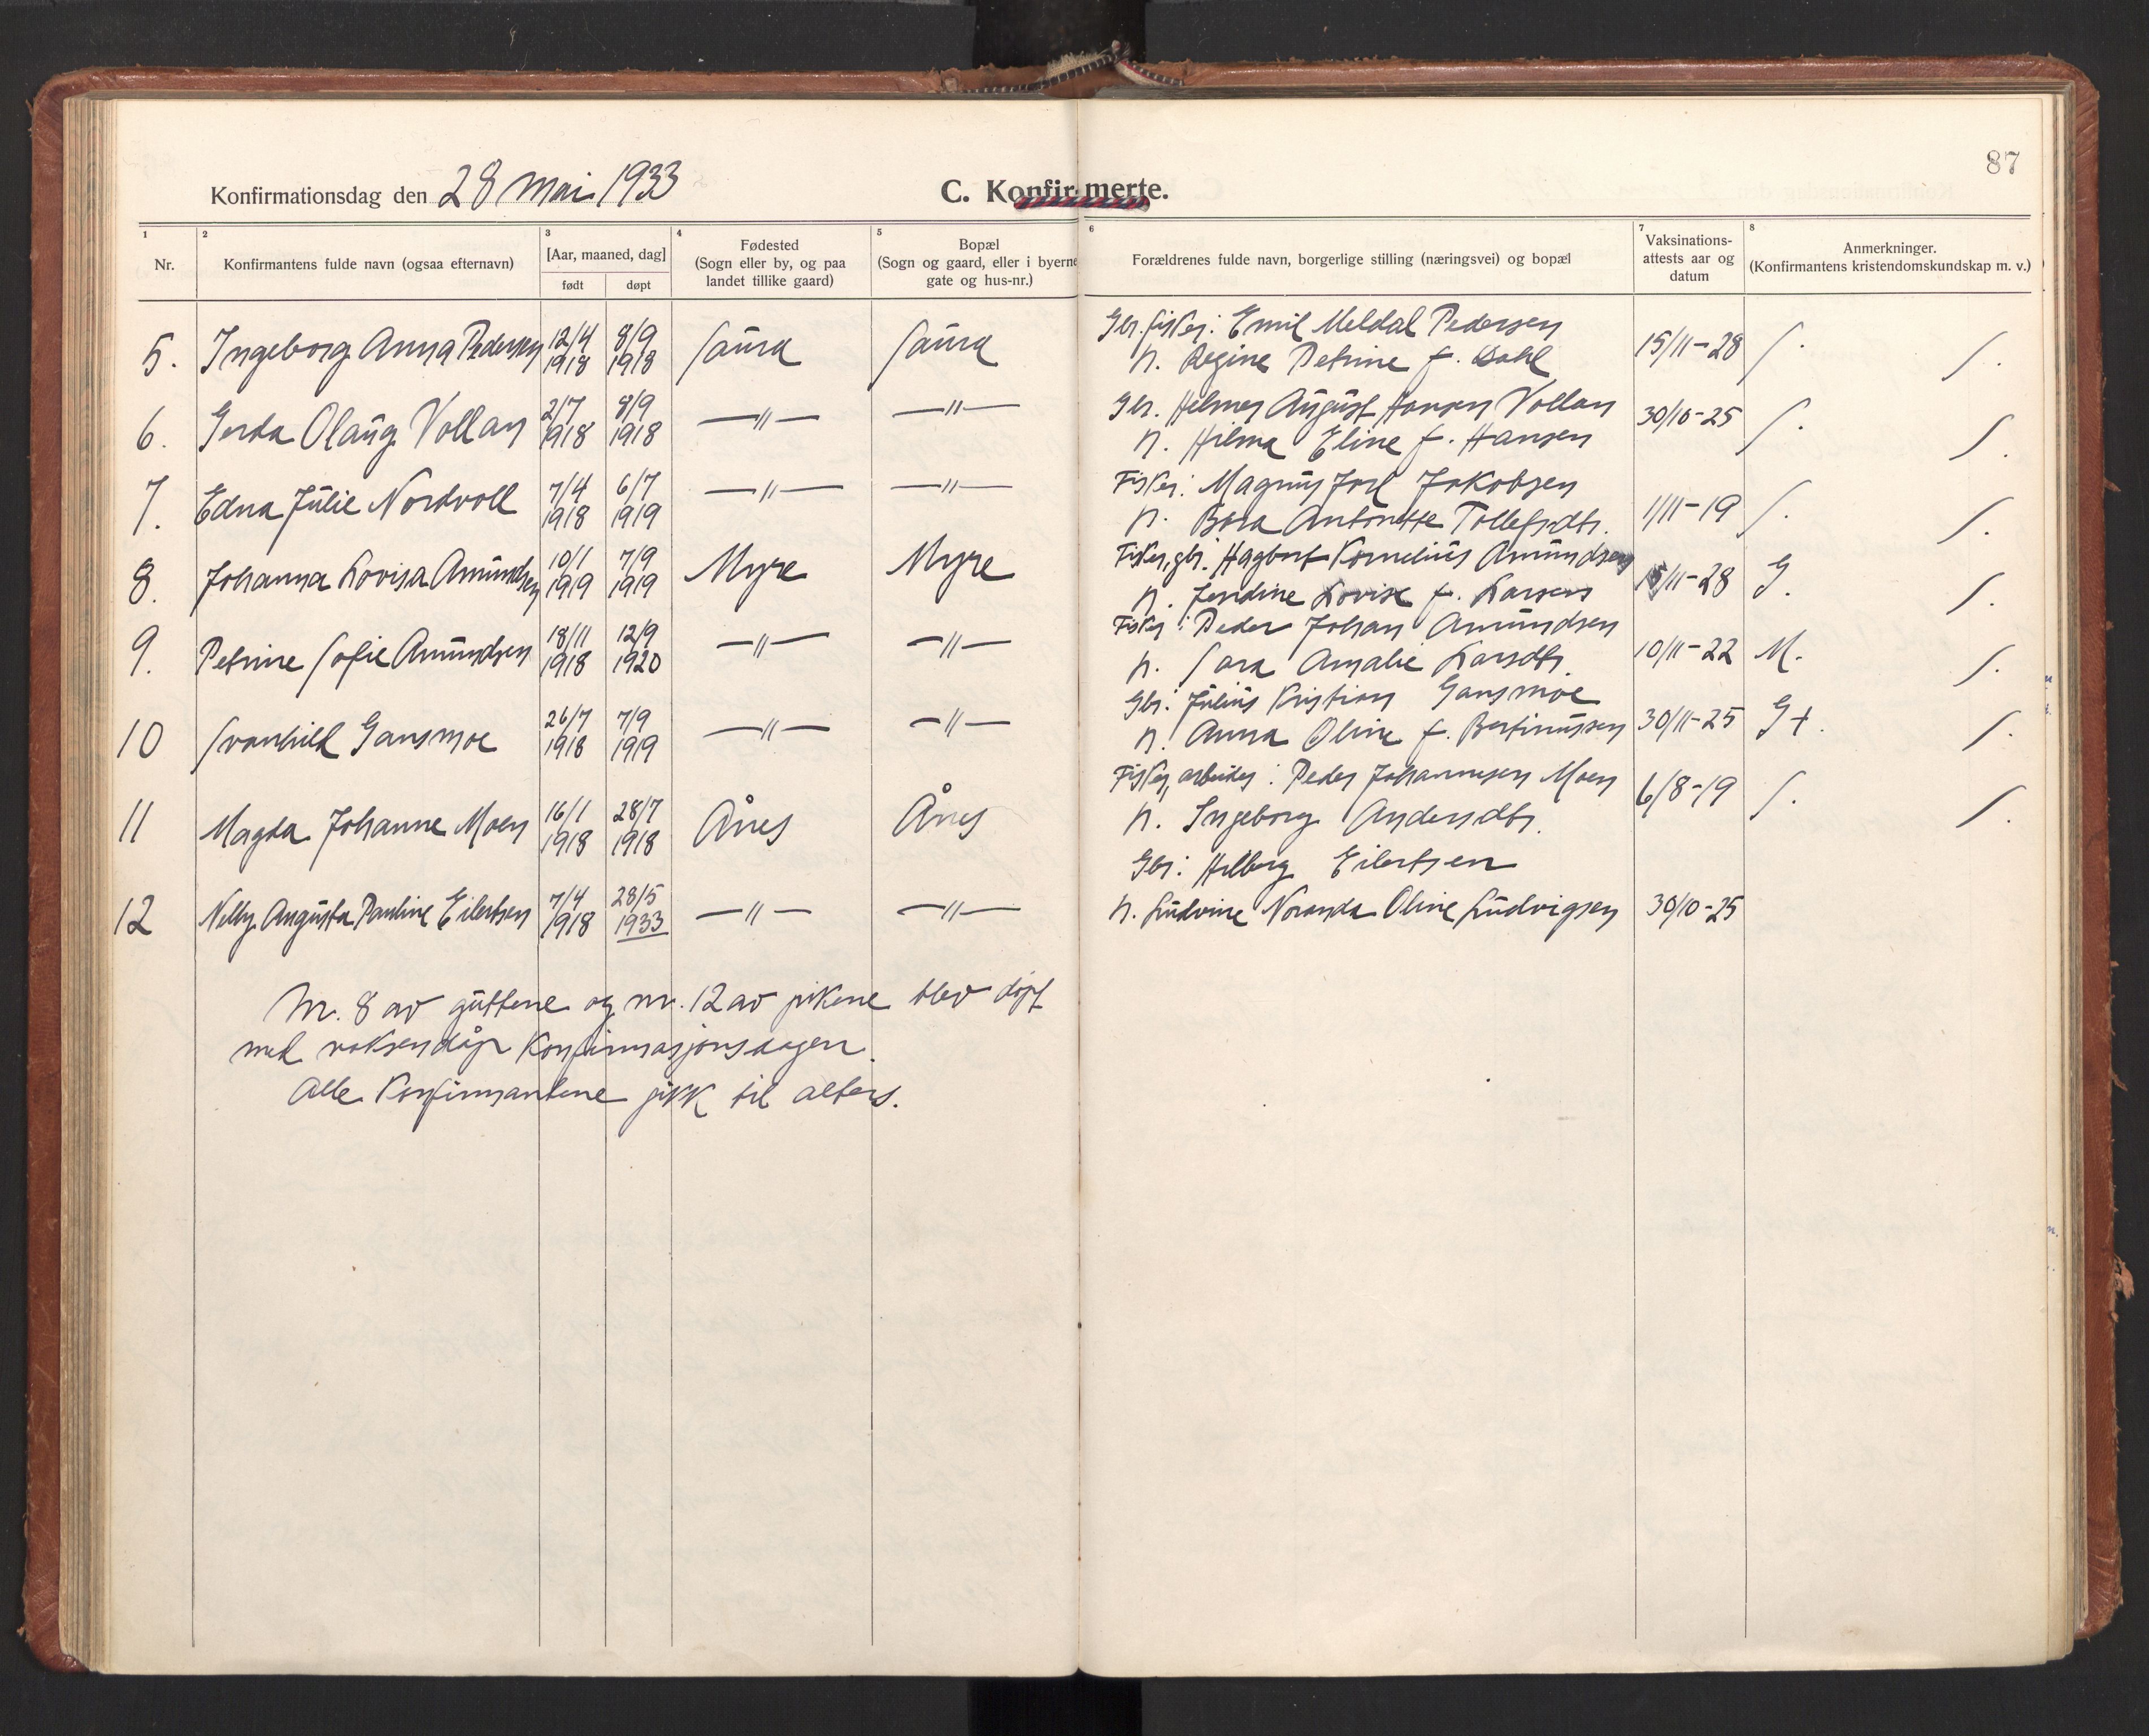 87
Konfirmationsdag den 28 mai 1933
C. Konfirmerte.
1 2 3 4 5 6 7 8
Nr.
Konfirmantens fulde navn (ogsaa efternavn)
[Aar, maaned, dag]
født døpt
Fødested
(Sogn eller by, og paa
landet tillike gaard)
Bopæl
(Sogn og gaard, eller i byerne
gate og hus-nr.)
Forældrenes fulde navn, borgerlige stilling (næringsvei) og bopæl
Vaksinations-
attests aar og
datum
Anmerkninger.
(Konfirmantens kristendomskundskap m. v.)
5. Ingeborg Anna Pedersen 12/4 1918 8/9 1918 Saura Saura
Gbr. fisker: Emil Meldal Pedersen
h. Regine Petrine f. Dahl 15/11-28 S. S.
6. Gerda Olaug Vollan 2/7 1918 8/9 1918 —〃— —〃—
Gbr. Helmer August Hansen Vollan
h. Hilma Eline f. Hansen 30/10-25 S. S.
7. Edna Julie Nordvoll 7/4 1918 6/7 1919 —〃— —〃—
Fisker: Magnus Joel Jakobsen
h. Bora Antonette Tollefsdtr. 1/11-19 S. S.
8. Johanna Lovisa Amundsen 10/1 1919 7/9 1919 Myre Myre
Fisker, gbr. Hagbart Kornelius Amundsen
h. Jendine Lovise f. Larsen 15/11-28 G. S.
9. Petrine Sofie Amundsen 18/11 1918 12/9 1920 —〃— —〃—
Fisker: Peder Johan Amundsen
h. Sara Amalie Larsdtr. 10/11-22 M. S.
10 Svanhild Gansmoe 26/7 1918 7/9 1919 —〃— —〃—
Gbr: Julius Kristian Gansmoe
h. Anna Oline f. Bertinussen 30/11-25 G+. S.
11 Magda Johanne Moen 16/1 1918 28/7 1918 Ånes Ånes
Fisker, arbeider: Peder Johannesen Moen
h. Ingeborg Andersdtr. 6/8-19 S. S.
12 Nelly Augusta Pauline Eilertsen 7/4 1918 28/5 1933 —〃— —〃—
Gbr: Hilberg Eilertsen
h. Ludvine Noranda Oline Ludvigsen 30/10-25
Nr. 8 av guttene og nr. 12 av pikene blev døpt
med voksendåp konfirmasjonsdagen.
Alle konfirmantene gikk til alters.